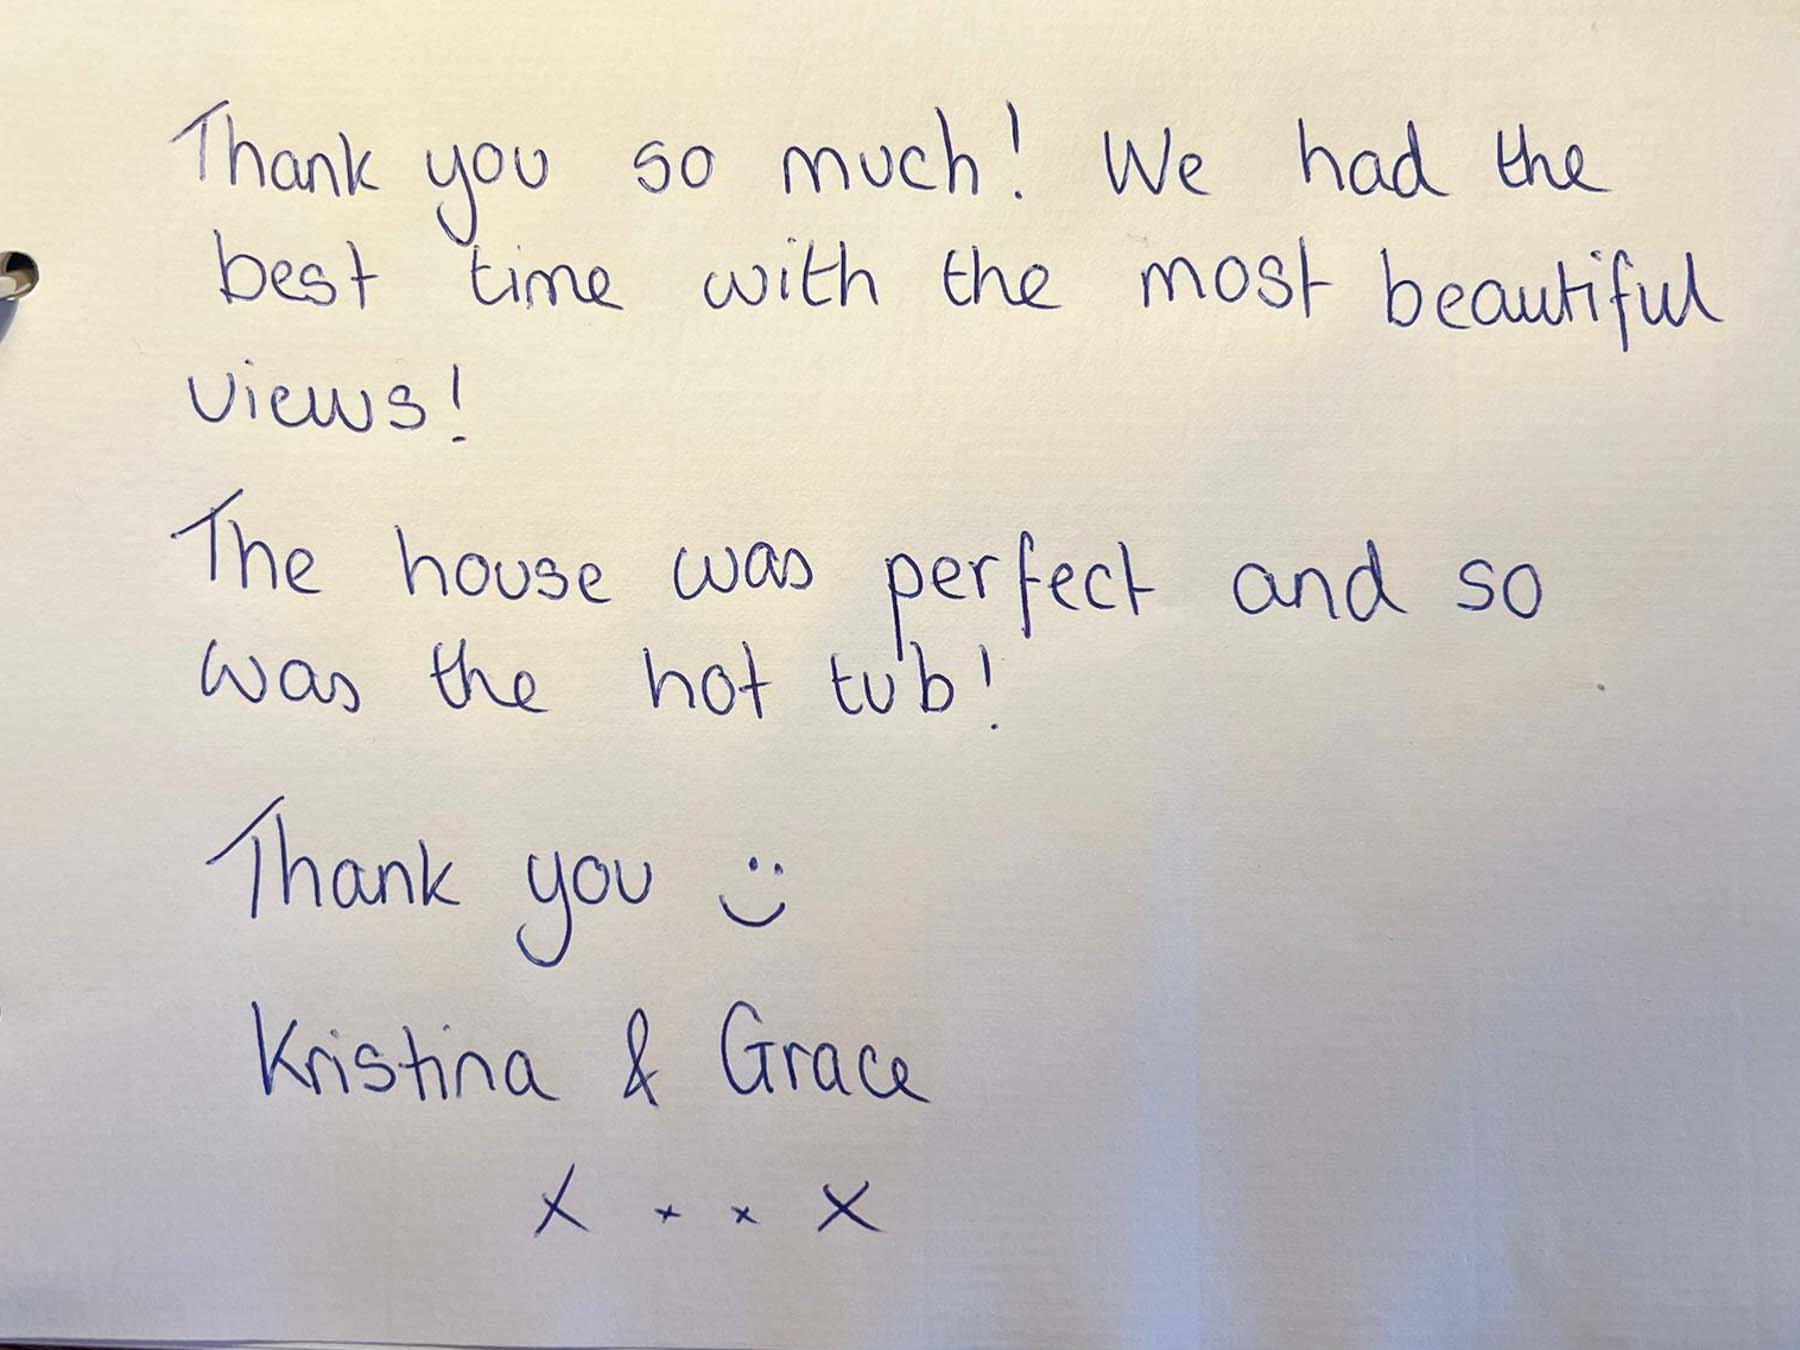 Thank you so much! We had the
best time with the most beautiful
views!
The house was perfect and so
was the hot tub!
Thank you :)
Kristina & Grace
X x x X